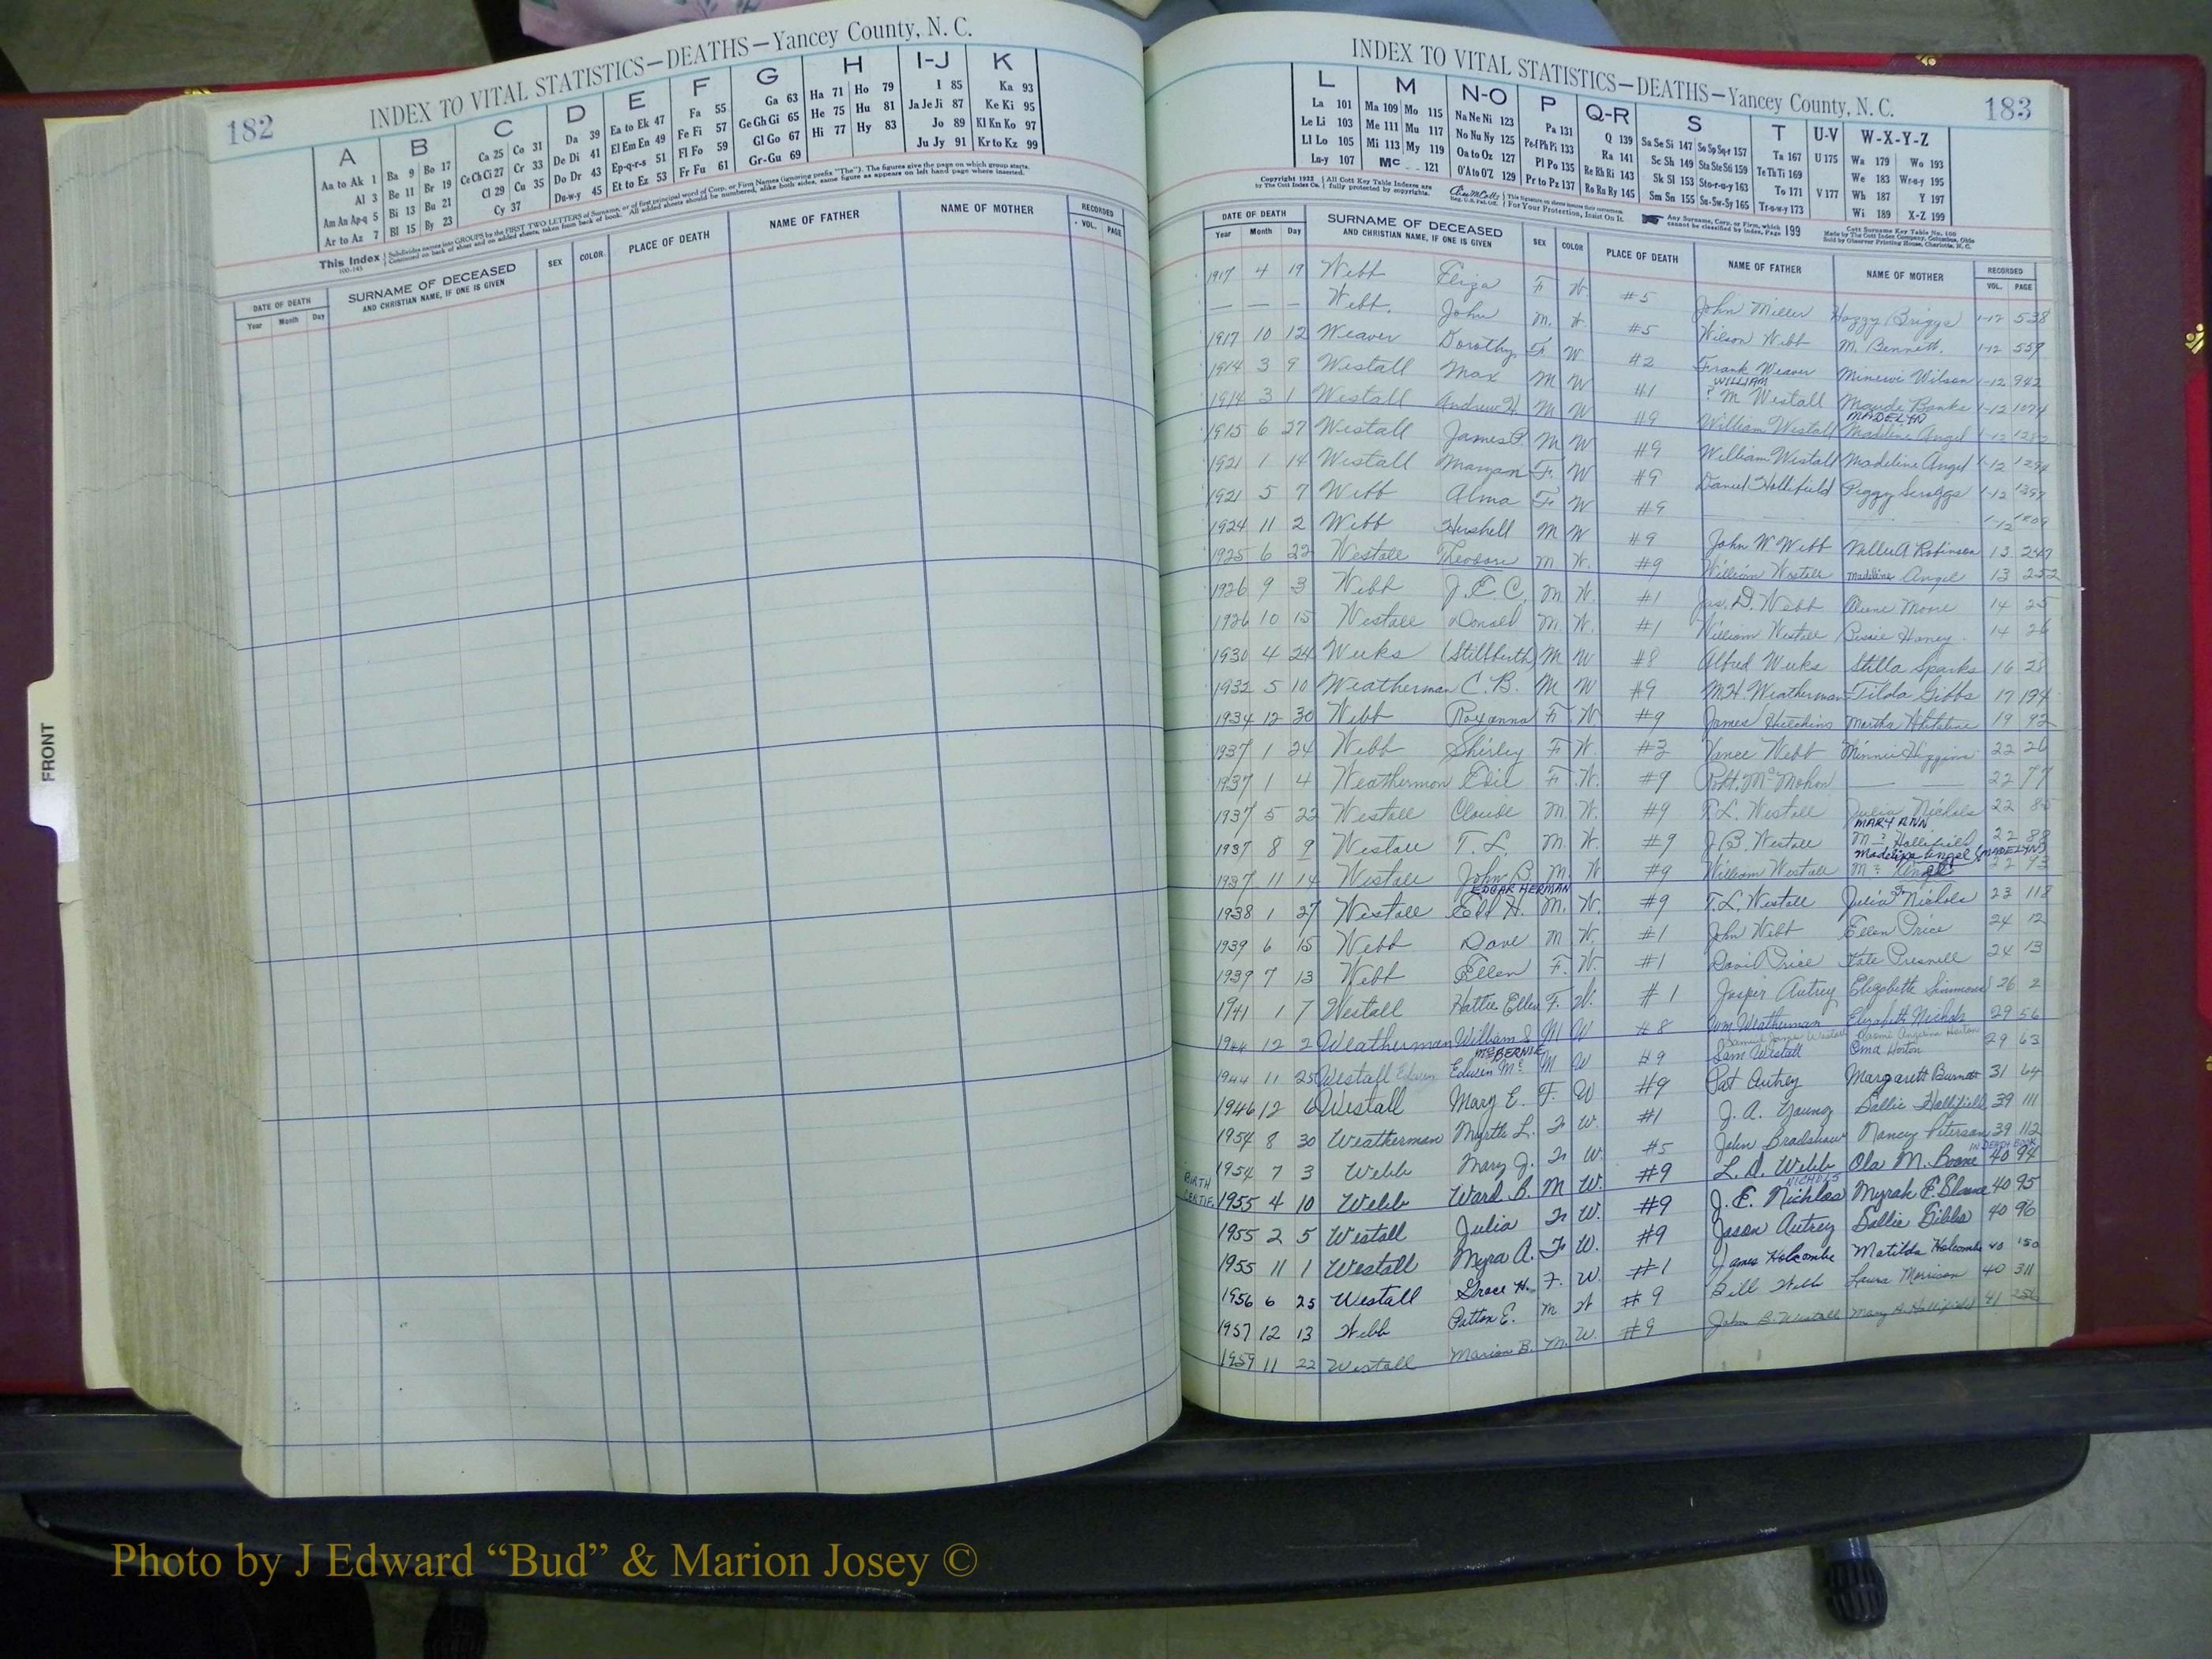 182
INDEX TO VITAL STATISTICS—DEATHS—Yancey County, N. C.
A B C D E F G H I-J K
Aa to Ak 1 Ba 9 Bo 17 Ca 25 Co 31 Da 39 Ea to Ek 47 Fa 55 Ga 63 Ha 71 Ho 79 I 85 Ka 93
Al 3 Be 11 Br 19 Ce Ch Ci 27 Cr 33 De Di 41 El Em En 49 Fe Fi 57 Ge Gh Gi 65 He 75 Hu 81 Ja Je Ji 87 Ke Ki 95
Am An Ap-q 5 Bi 13 Bu 21 Cl 29 Cu 35 Do Dr 43 Ep-q-r-s 51 Fl Fo 59 Gl Go 67 Hi 77 Hy 83 Jo 89 Kl Kn Ko 97
Ar to Az 7 Bl 15 By 23 Cy 37 Du-w-y 45 Et to Ez 53 Fr Fu 61 Gr-Gu 69 Ju Jy 91 Kr to Kz 99
This Index
DATE OF DEATH
Year Month Day
SURNAME OF DECEASED
AND CHRISTIAN NAME, IF ONE IS GIVEN
SEX COLOR PLACE OF DEATH NAME OF FATHER NAME OF MOTHER
RECORDED
VOL. PAGE
FRONT
INDEX TO VITAL STATISTICS—DEATHS—Yancey County, N. C.
183
L M N-O P Q-R S T U-V W-X-Y-Z
La 101 Ma 109 Mo 115 Na Ne Ni 123 Pa 131 Q 139 Sa Se Si 147 So Sp Sq-r 157 Ta 167 U 175 Wa 179 Wo 193
Le Li 103 Me 111 Mu 117 No Nu Ny 125 Pe-f Ph Pi 133 Ra 141 Sc Sh 149 Sta Ste Sti 159 Te Th Ti 169 We 183 Wr-u-y 195
Ll Lo 105 Mi 113 My 119 Oa to Oz 127 Pl Po 135 Re Rh Ri 143 Sk Sl 153 Sto-r-u-y 163 To 171 V 177 Wh 187 Y 197
Lu-y 107 Mc 121 O'A to O'Z 129 Pr to Pz 137 Ro Ru Ry 145 Sm Sn 155 Su-Sw-Sy 165 Tr-u-w-y 173 Wi 189 X-Z 199
Copyright 1932
All Cott Key Table Indexes are fully protected by copyrights.
For Your Protection, Insist On It.
Any Surname, Corp. or Firm, which cannot be classified by index, Page 199
DATE OF DEATH
Year Month Day
SURNAME OF DECEASED
AND CHRISTIAN NAME, IF ONE IS GIVEN
SEX COLOR PLACE OF DEATH NAME OF FATHER NAME OF MOTHER
RECORDED
VOL. PAGE
1917 4 19 Webb Eliza F W. #5 John Miller Briggs 1-12 538
— — — Webb. John M. W. #5 Wilson Webb M. Bennett. 1-12 559
1917 10 12 Weaver Dorothy F W #2 Frank Weaver Wilson 1-12 942
1914 3 9 Westall Max M W #1 WILLIAM ? M Westall Maude Banks 1-12 1074
1914 3 1 Westall Andrew H. M W #9 William Westall MADELYN Madeline Angel 1-12
1915 6 27 Westall James P. M W #9 William Westall Madeline Angel 1-12 1294
1921 1 14 Westall F. W #9 Daniel Hollifield Peggy Scroggs 1-12 1397
1921 5 7 Webb Alma F W #9 1-12
1924 11 2 Webb Hershell M W #9 John W Webb Robinson 13 247
1925 6 22 Westall Theodore M W. #9 William Westall Madeline Angel 13 252
1926 9 3 Webb J. E. C. M W. #1 Jas. D. Webb Moore 14 25
1926 10 15 Westall Donald M. W. #1 William Westall Bessie Honey 14 26
1930 4 24 Weeks (Stillbirth) M W #8 Alfred Weeks Stilla Sparks 16 28
1932 5 10 Weatherman C. B. M W #9 M.H. Weatherman Tilda Gibbs 17 194
1934 12 30 Webb Roxanna F W #9 James Martha 19 92
1937 1 24 Webb Shirley F W. #3 Vance Webb Minnie Higgins 22 26
1937 1 4 Weathermon F W. #9 Robt. McMahon — — 22 77
1937 5 22 Westall Claude M. W. #9 T. L. Westall Julia Nichols 22 85
1937 8 9 Westall T. L. M. W. #9 J. B. Westall MARY ANN M— ? Hollifield 22 88
1937 11 14 Westall John B. M. W #9 William Westall Madeline Angel (MADELYN) 22 93
1938 1 27 Westall EDGAR HERMAN H. M. W. #9 T. L. Westall Julia Nichols 23 118
1939 6 15 Webb Dave M W. #1 John Webb Ellen Price 24 12
1939 7 13 Webb Ellen F. W. #1 David Price Kate Presnell 24 13
1941 1 7 Westall Hattie Ellen F. W. #1 Jasper Autrey Elizabeth Simmons 26 2
1944 12 2 Weatherman William S M W #8 Wm Weatherman Elizabeth Nichols 29 56
1944 11 25 Westall Edwin McBERNIE Edwin Mc M W #9 Sam Westall Ema Horton 29 63
1946 12 6 Westall Mary E. F. W #9 Pat Autrey Margarett Burnett 31 64
1954 8 30 Weatherman Myrtle L. F W. #1 J. A. Young Sallie Hollifield 39 111
1954 7 3 Webb Mary J. F W. #5 John Bradshaw Nancy Peterson 39 112
BIRTH CERTIF. 1955 4 10 Webb Ward B. M W. #9 L. D. Webb Ola M. Boone IN DEATH BOOK 40 94
1955 2 5 Westall Julia F W. #9 J. E. Nichlos NICHOLS Myrah E. Sloane 40 95
1955 11 1 Westall Myra A. F W. #9 Jason Autrey Sallie Gibbs 40 96
1956 6 25 Westall Grace H. F. W. #1 James Holcombe Matilda Holcombe 40 150
1957 12 13 Webb Patton E. M W #9 Bill Webb Laura Morrison 40 311
1959 11 22 Westall Marion B. M. W. #9 John B. Westall Mary A. Hollifield 41
Photo by J Edward “Bud” & Marion Josey ©